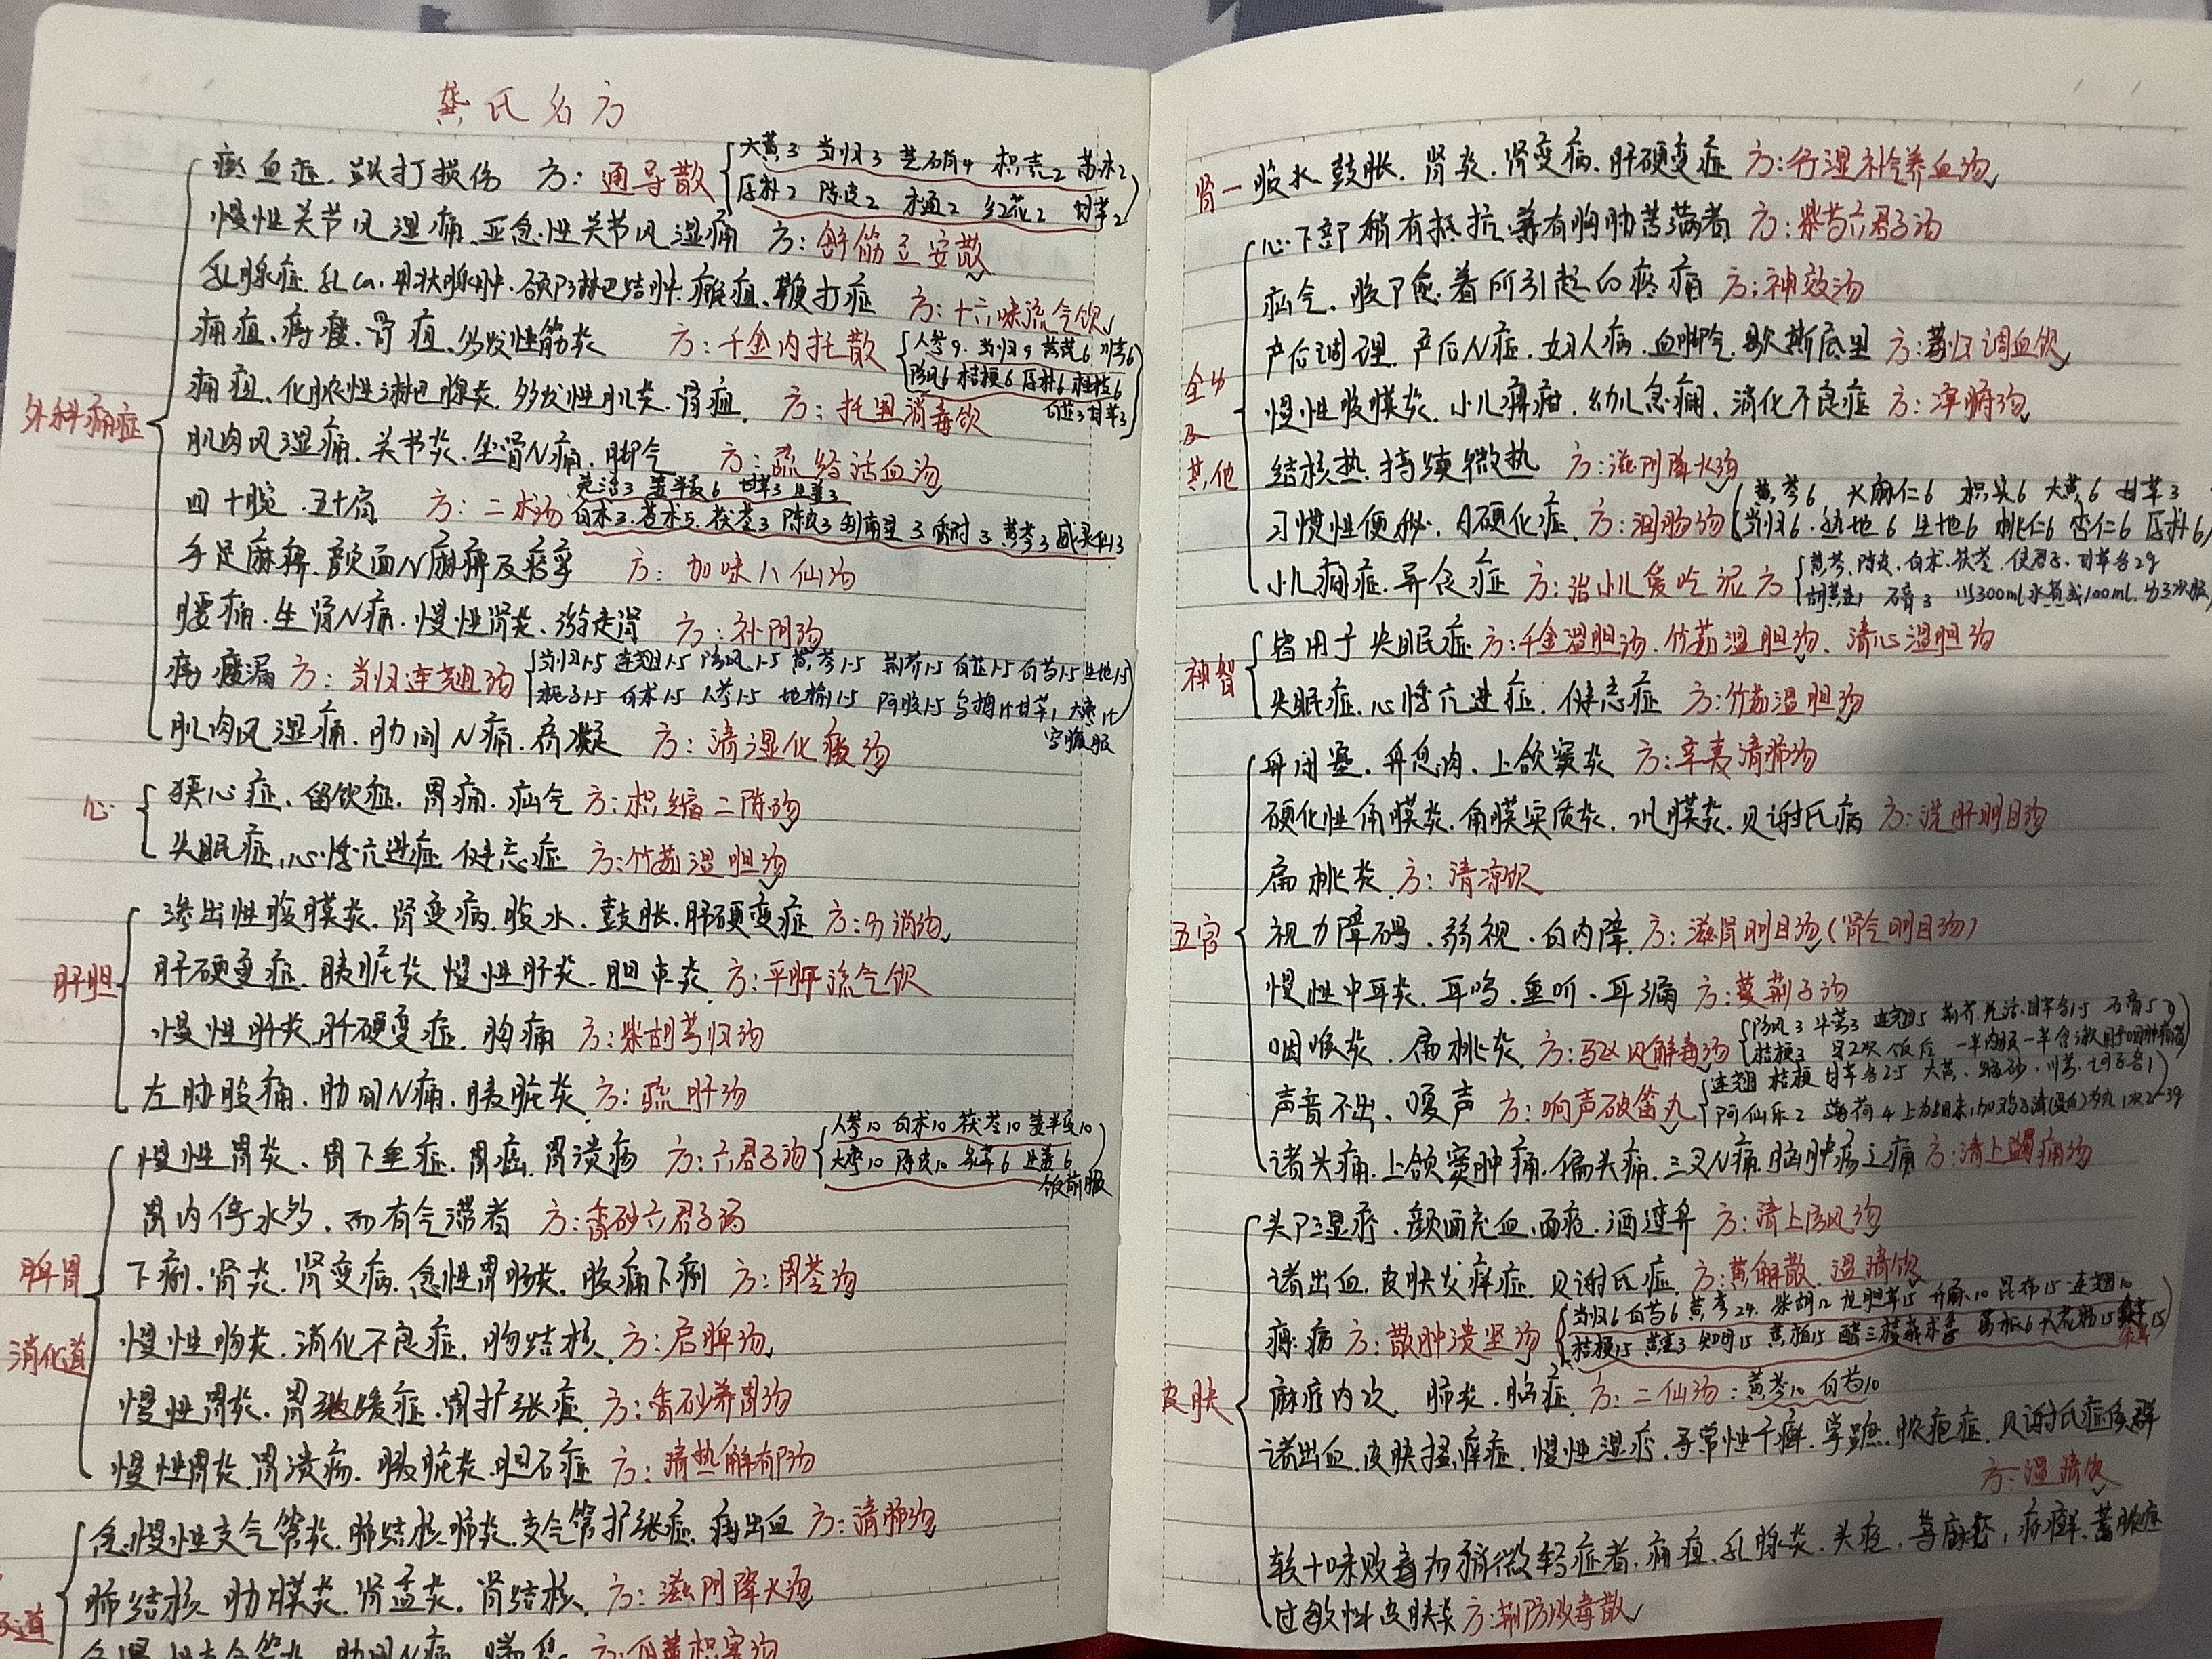 龚氏名方
外科痛症
瘀血症、跌打损伤 方：通导散
大黄3 当归3 芒硝4 枳壳2 苏木2
厚朴2 陈皮2 木通2 红花2 甘草2
慢性关节风湿痛、亚急性关节风湿痛 方：舒筋立安散
乳腺症、乳Ca、甲状腺肿、颈部淋巴结肿、瘰疽、鞭打症 方：十六味流气饮
痈疽、痔瘘、骨疽、多发性筋炎 方：千金内托散
人参9 当归9 黄芪6 川芎6
防风6 桔梗6 厚朴6 桂枝6
白芷3 甘草3
痈疽、化脓性淋巴腺炎、多发性肌炎、骨疽 方：托里消毒饮
肌肉风湿痛、关节炎、坐骨N痛、脚气 方：疏经活血汤
四十腕、五十肩 方：二术汤
羌活3 姜半夏6 甘草3 生姜3
白术3 苍术5 茯苓3 陈皮3 制南星3 香附3 黄芩3 威灵仙3
手足麻痹、颜面N麻痹及痉挛 方：加味八仙汤
腰痛、坐骨N痛、慢性肾炎、游走肾 方：补阴汤
痔瘘漏 方：当归连翘汤
当归1.5 连翘1.5 防风1.5 黄芩1.5 荆芥1.5 白芷1.5 白芍1.5 生地1.5
栀子1.5 白术1.5 人参1.5 地榆1.5 阿胶1.5 乌梅1个 甘草1 大枣1个
空腹服
肌肉风湿痛、肋间N痛、痞凝 方：清湿化痰汤
心
狭心症、留饮症、胃痛、疝气 方：枳缩二陈汤
失眠症、心悸亢进症、健忘症 方：竹茹温胆汤
肝胆
渗出性腹膜炎、肾变病、腹水、鼓胀、肝硬变症 方：分消汤
肝硬变症、胰脏炎、慢性肝炎、胆囊炎 方：平肝流气饮
慢性肝炎、肝硬变症、胸痛 方：柴胡芎归汤
左胁腹痛、肋间N痛、胰脏炎 方：疏肝汤
脾胃
消化道
慢性胃炎、胃下垂症、胃癌、胃溃疡 方：六君子汤
人参10 白术10 茯苓10 姜半夏10
大枣10 陈皮10 炙草6 生姜6
饭前服
胃内停水多，而有气滞者 方：香砂六君子汤
下痢、肾炎、肾变病、急性胃肠炎、腹痛下痢 方：胃苓汤
慢性肠炎、消化不良症、肠结核 方：启脾汤
慢性胃炎、胃弛缓症、胃扩张症 方：香砂养胃汤
慢性胃炎、胃溃疡、胰脏炎、胆石症 方：清热解郁汤
急慢性支气管炎、肺结核、肺炎、支气管扩张症、痔出血 方：清肺汤
道
肺结核、肋膜炎、肾盂炎、肾结核 方：滋阴降火汤
肾
腹水、鼓胀、肾炎、肾变病、肝硬变症 方：行湿补气养血汤
全身
及
其他
心下部稍有抵抗，兼有胸胁苦满者 方：柴芍六君子汤
疝气、腹部愈着所引起的疼痛 方：神效汤
产后调理、产后N症、妇人病、血脚气、歇斯底里 方：芎归调血饮
慢性腹膜炎、小儿脾疳、幼儿急痫、消化不良症 方：浄腑汤
结核热、持续微热 方：滋阴降火汤
习惯性便秘、A硬化症 方：润肠汤
黄芩6 火麻仁6 枳实6 大黄6 甘草3
当归6 熟地6 生地6 桃仁6 杏仁6 厚朴6
小儿痫症、异食症 方：治小儿爱吃泥方
黄芩、陈皮、白术、茯苓、使君子、甘草各2g
胡黄连1 石膏3 以300ml水煮成100ml，分3次服
神智
皆用于失眠症 方：千金温胆汤、竹茹温胆汤、清心温胆汤
失眠症、心悸亢进症、健忘症 方：竹茹温胆汤
五官
鼻闭塞、鼻息肉、上颌窦炎 方：辛夷清肺汤
硬化性角膜炎、角膜实质炎、巩膜炎、贝谢氏病 方：洗肝明目汤
扁桃炎 方：清凉饮
视力障碍、弱视、白内障 方：滋肾明目汤（肾气明目汤）
慢性中耳炎、耳鸣、重听、耳漏 方：蔓荆子汤
咽喉炎、扁桃炎 方：驱风解毒汤
防风3 牛蒡3 连翘5 荆芥、羌活、甘草各1.5 石膏5
桔梗3 日2次 饭后 一半内服一半含漱
声音不出、嗄声 方：响声破笛丸
连翘 桔梗 甘草各2.5 大黄、缩砂、川芎、诃子各1
阿仙乐2 薄荷4
诸头痛、上颌窦肿痛、偏头痛、三叉N痛、脑肿疡之痛 方：清上蠲痛汤
皮肤
头部湿疹、颜面充血、面疱、酒渣鼻 方：清上防风汤
诸出血、皮肤发痒症、贝谢氏症 方：黄解散、温清饮
瘰病 方：散肿溃坚汤
当归6 白芍6 黄芩24 柴胡12 龙胆草15 升麻10 昆布15 连翘10
桔梗15 黄连3 知母15 黄柏15 醋三棱莪术各 葛根6 天花粉15
麻疹内攻、肺炎、脑症 方：二仙汤：黄芩10 白芍10
诸出血、皮肤搔痒症、慢性湿疹、寻常性干癣、掌蹠脓疱症、贝谢氏症候群
方：温清饮
较十味败毒汤稍微轻症者，痈疽、乳腺炎、头疮、荨麻疹、疥癣、蓄脓症
过敏性皮肤炎 方：荆防败毒散